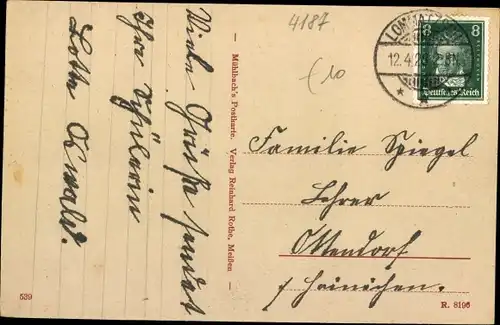 4187
(10
Viele Grüße sendet
Ihre Schülerin
Lotte Oswald.
Mühlbach's Postkarte. Verlag Reinhard Rothe, Meißen
LOMMATZSCH
12.4.2
8 8
Deutsches Reich
Familie Spiegel
Lehrer
Ottendorf
b/ Hainichen.
539
R. 8196